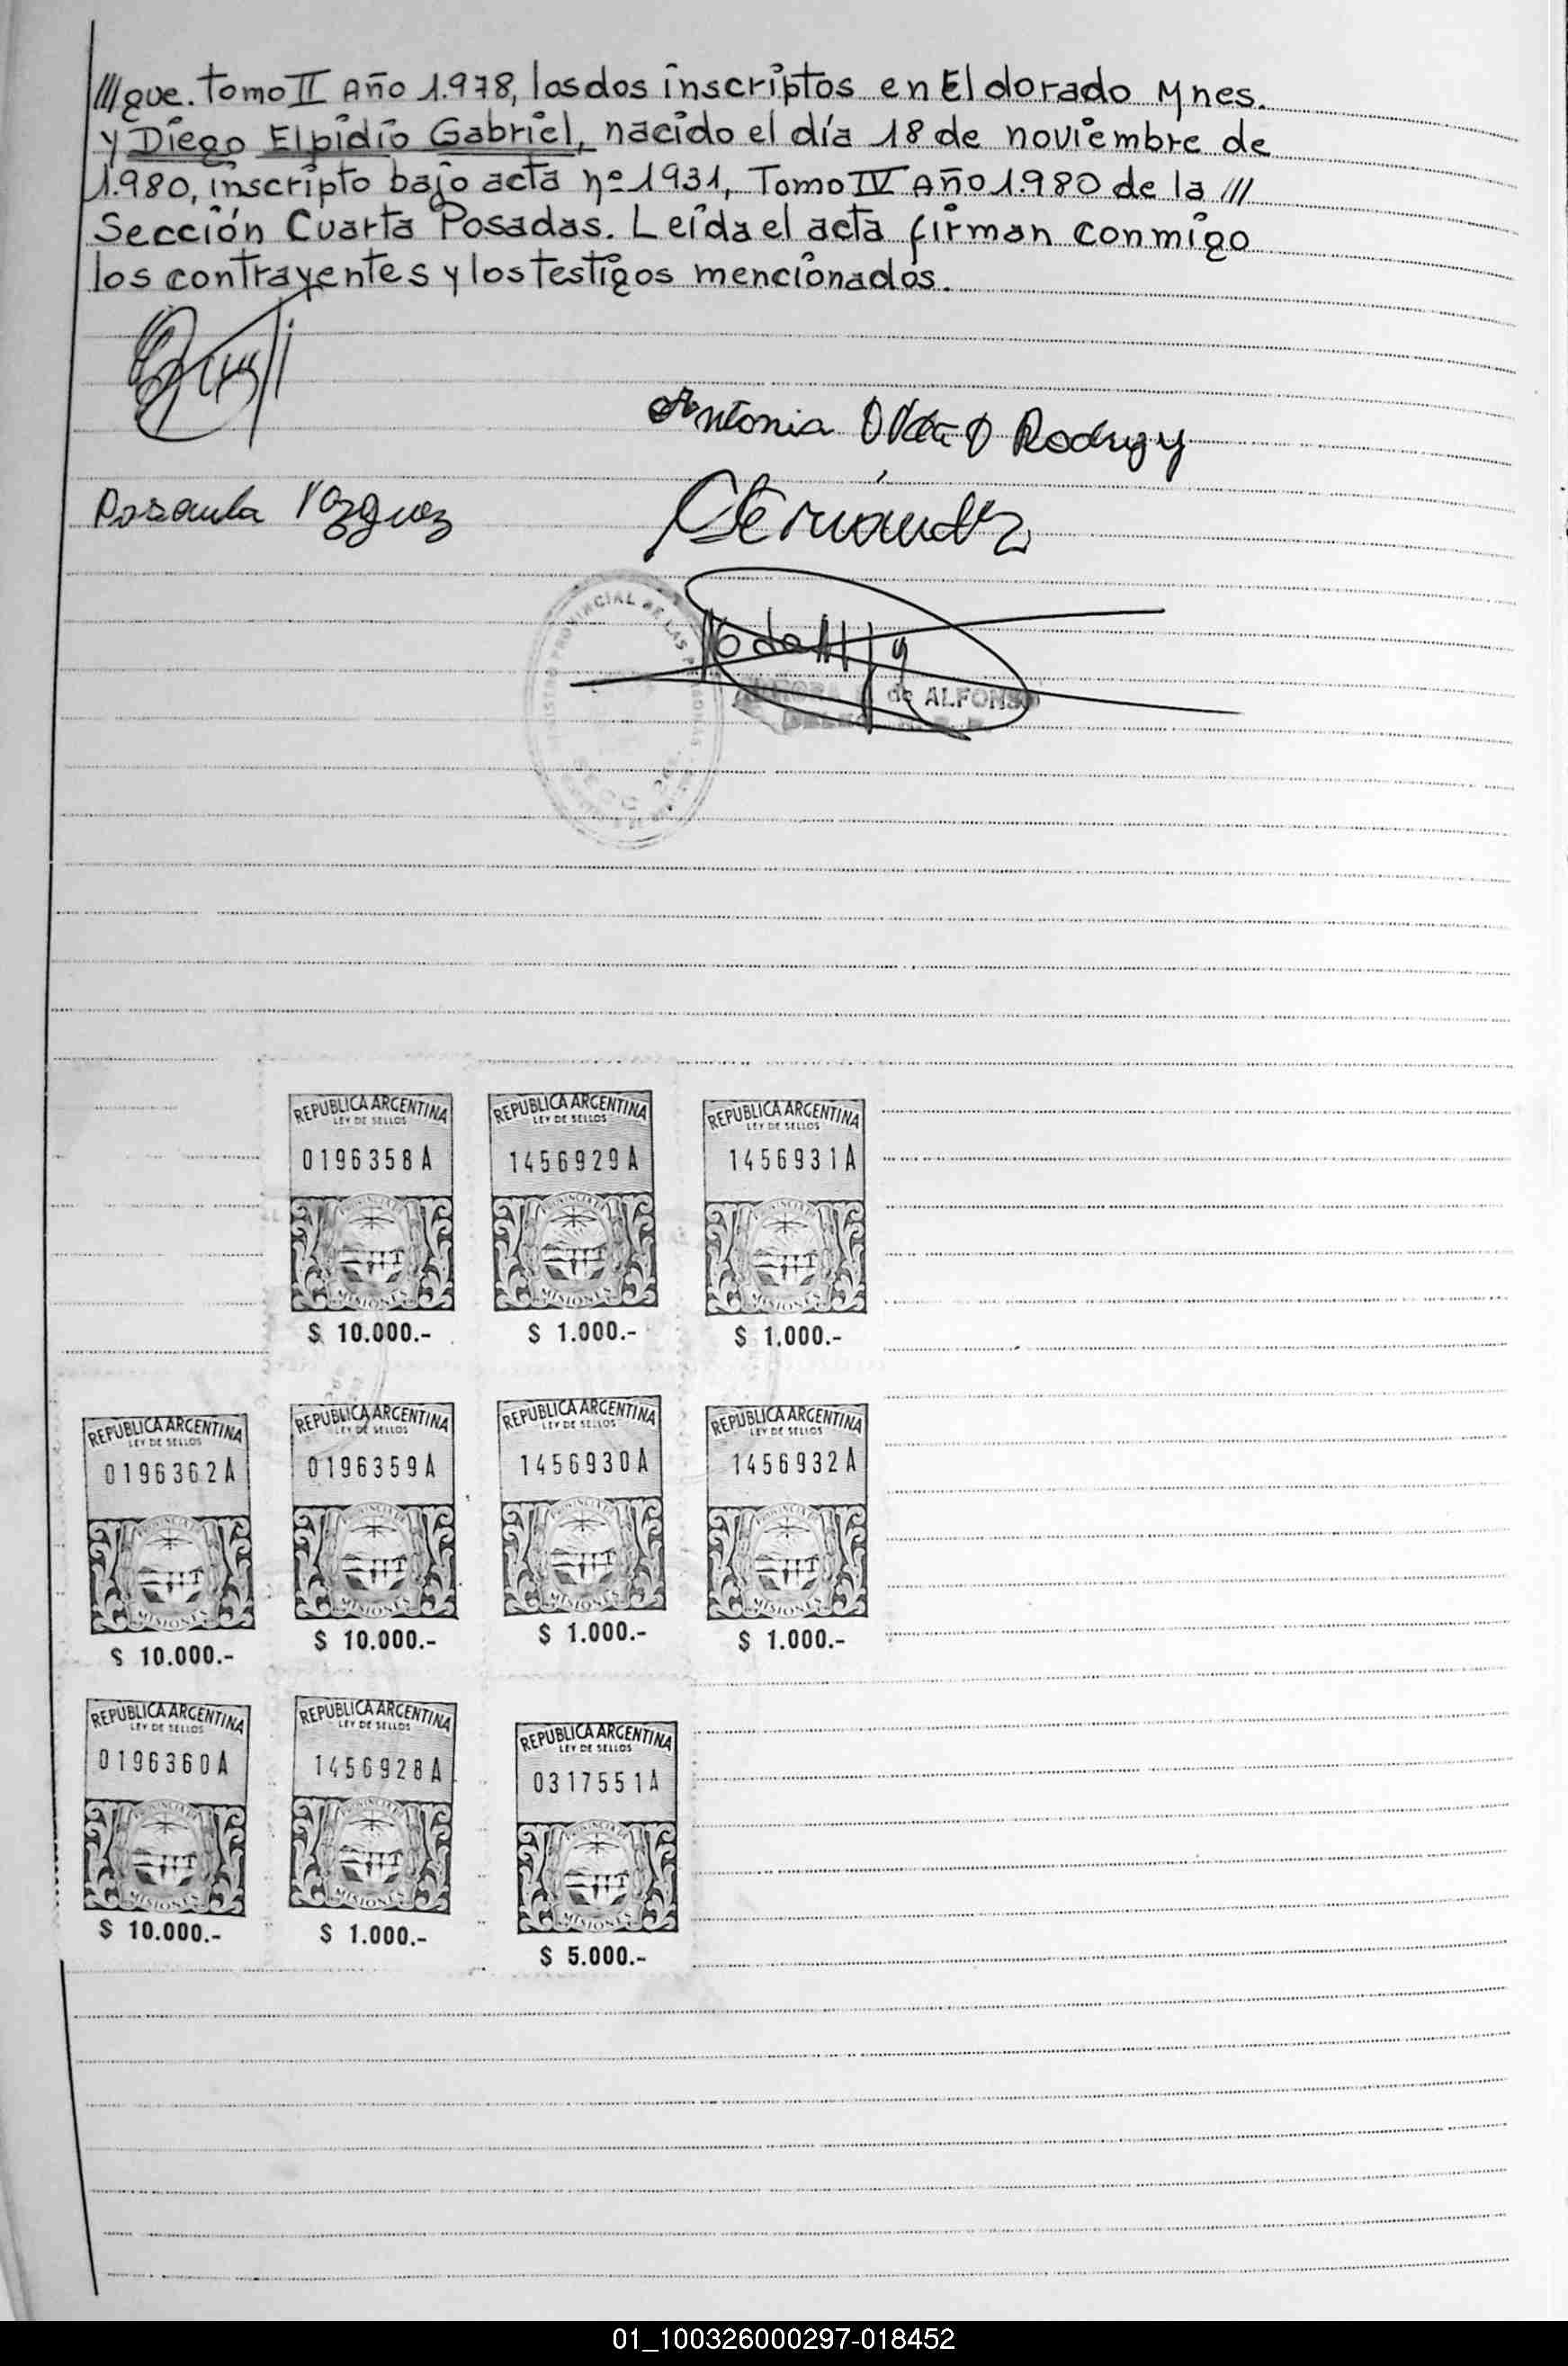 /// que. Tomo II Año 1.978, los dos inscriptos en Eldorado Mnes.
y Diego Elpidio Gabriel, nacido el día 18 de noviembre de
1.980, inscripto bajo acta nº 1931, Tomo IV Año 1.980 de la ///
Sección Cuarta Posadas. Leída el acta firman conmigo
los contrayentes y los testigos mencionados.
Antonia
Hernández
PROVINCIAL DE LAS PERSONAS
de ALFONSO
REPUBLICA ARGENTINA
LEY DE SELLOS
0196358A
MISIONES
$ 10.000.-
REPUBLICA ARGENTINA
LEY DE SELLOS
1456929A
MISIONES
$ 1.000.-
REPUBLICA ARGENTINA
LEY DE SELLOS
1456931A
MISIONES
$ 1.000.-
REPUBLICA ARGENTINA
LEY DE SELLOS
0196362A
MISIONES
$ 10.000.-
REPUBLICA ARGENTINA
LEY DE SELLOS
0196359A
MISIONES
$ 10.000.-
REPUBLICA ARGENTINA
LEY DE SELLOS
1456930A
MISIONES
$ 1.000.-
REPUBLICA ARGENTINA
LEY DE SELLOS
1456932A
MISIONES
$ 1.000.-
REPUBLICA ARGENTINA
LEY DE SELLOS
0196360A
MISIONES
$ 10.000.-
REPUBLICA ARGENTINA
LEY DE SELLOS
1456928A
MISIONES
$ 1.000.-
REPUBLICA ARGENTINA
LEY DE SELLOS
0317551A
MISIONES
$ 5.000.-
01_100326000297-018452